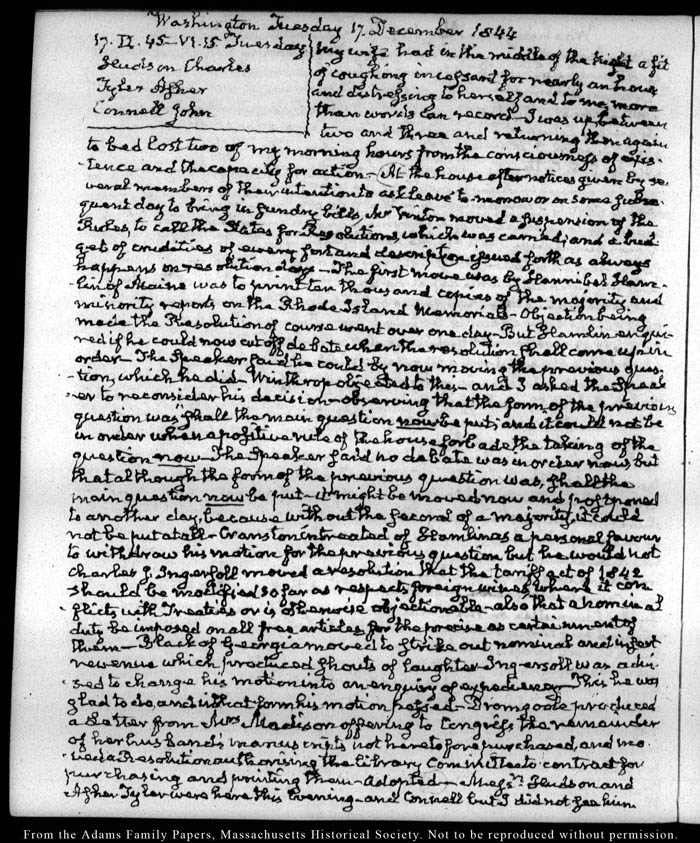 Washington Tuesday 17. December 1844
17. IV.45–VI.15 Tuesday
Hudson Charles
Tyler Asher
Connell John
My wife had in the middle of the Night a fit
of coughing incessant for nearly an hour
and distressing to herself and to me more
than words can record. I was up between
two and three and returning then again
to bed lost two of my morning hours from the consciousness of exis-
tence and the capacity for action – At the house after notices given by se-
veral members of their intention to ask leave to-morrow or on some subse-
quent day to bring in sundry bills, Mr Vinton moved a suspension of the
Rules, to call the States for Resolutions, which was carried; and a bud-
get of crudities of every sort and description issued forth as always
happens on resolution days – The first move was by Hannibal Ham-
lin of Maine was to print ten thousand copies of the majority and
minority reports on the Rhode Island Memorials – Objection being
made the Resolution of course went over one day – But Hamlin enqui-
red if he could now cut off debate when the resolution shall come up in
order – The Speaker said he could by now moving the previous ques-
tion, which he did – Winthrop objected to this – and I asked the Speak
er to reconsider his decision – observing that the form of the previous
question was "shall the main question now be put; and it could not be
in order when a positive rule of the house forbade the taking of the
question now – The Speaker said no debate was in order now, but
that although the form of the previous question was, shall the
main question now be put – it might be moved now and postponed
to another day, because without the second of a majority, it could
not be put at all – Cranston intreated of Hamlin as a personal favour
to withdraw his motion for the previous question but he would not
Charles J. Ingersoll moved a resolution that the tariff act of 1842
should be modified so far as respects foreign wines where it con
flicts with Treaties or is otherwise objectionable – also that a nominal
duty be imposed on all free articles for the precise ascertainment of
them – Black of Georgia moved to strike out nominal and insert
revenue which produced shouts of laughter. Ingersoll was advi-
sed to change his motion into an enquiry of expediency – This he was
glad to do, and in that form his motion passed – Dromgoole produced
a Letter from Mrs Madison offering to Congress the remainder
of her husband's manuscripts not heretofore purchased, and mo-
ved a Resolution authorising the library Committee to contract for
purchasing and printing them – adopted – Messrs Hudson and
Asher Tyler were here this Evening – and Connell but I did not see him
From the Adams Family Papers, Massachusetts Historical Society. Not to be reproduced without permission.